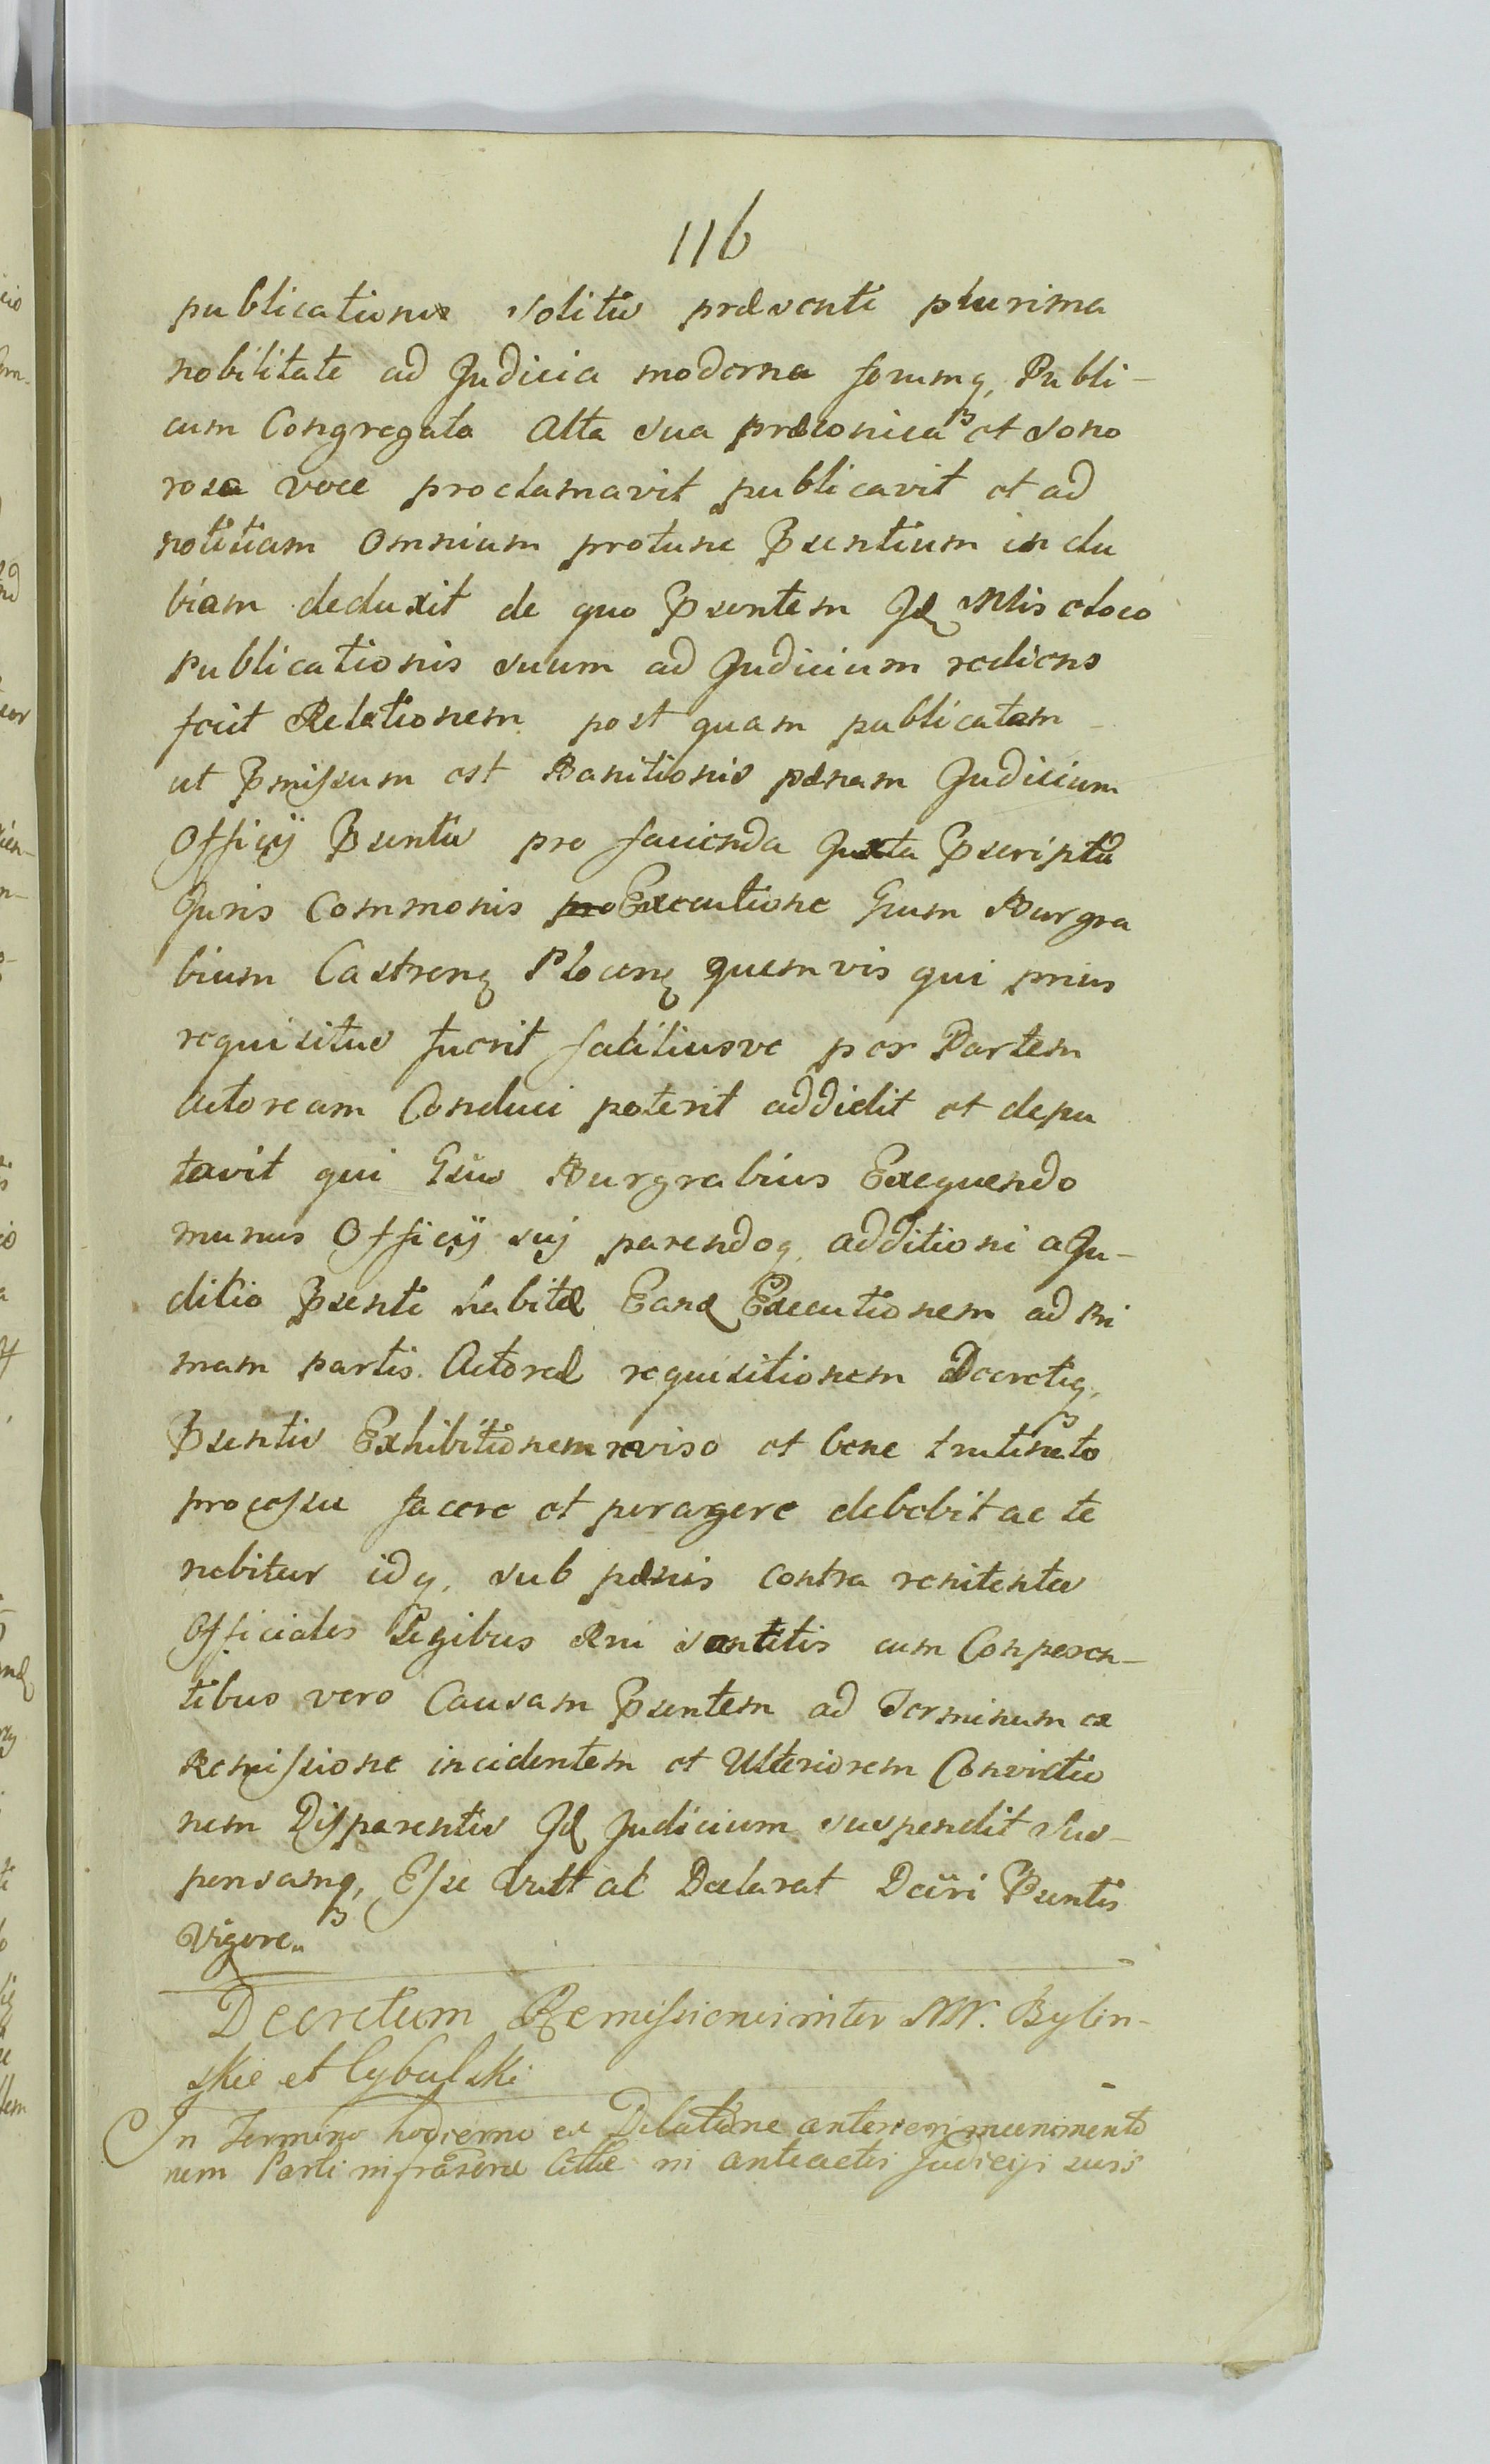 116
publicationis solitis præsenti plurima
nobilitate ad Judicia moderna forumq, Publi-
cum Congregata Alta sua præconica et sono
rosa voce proclamavit publicavit et ad
notitiam Omnium protunc Psentium in du
biam deduxit de quo Psentem Jdq Mtlis eloco
Publicationis suum ad Judicium rediens
fecit Relationem post quam publicatam
ut Pmissum est Banitionis pænam Judicium
Officij Psentis pro facienda Juxta Pscriptū
Juris Commonis Executione Gsum Burgra
bium Castrenq Plocenq quemvis qui prius
requisitus fuerit facilius ve per Partem
Actoream Conduci poterit addidit et depu
tavit qui Gsus Burgrabius Exequendo
munus Officij suj parendoq, additioni a Ju-
ditio Psenti habitæ Eandq Executionem ad Pri
mam partis Actoreæ requisitionem Decretiq,
Psentis Exhibitionem reviso et bene trutinato
processu facere et peragere debebit ac te
nebitur idq, sub pænis contra renitentes
Officiales Legibus Rni Sancitis cum Conparen-
tibus vero Causam Psentem ad Terminum ex
Remissione incidentem et Ulteriorem Convictio
nem Disparentis Jdq Judicium suspendit Sus-
pensamq, Esse Vult ac Declarat Dcīri Psentis
Vigore.
Decretum Remissionis inter NN. Bylin-
skie et Cybulski
In Termino hodierno ex Dilatione
nem Parti in anteactis Judicijs suis